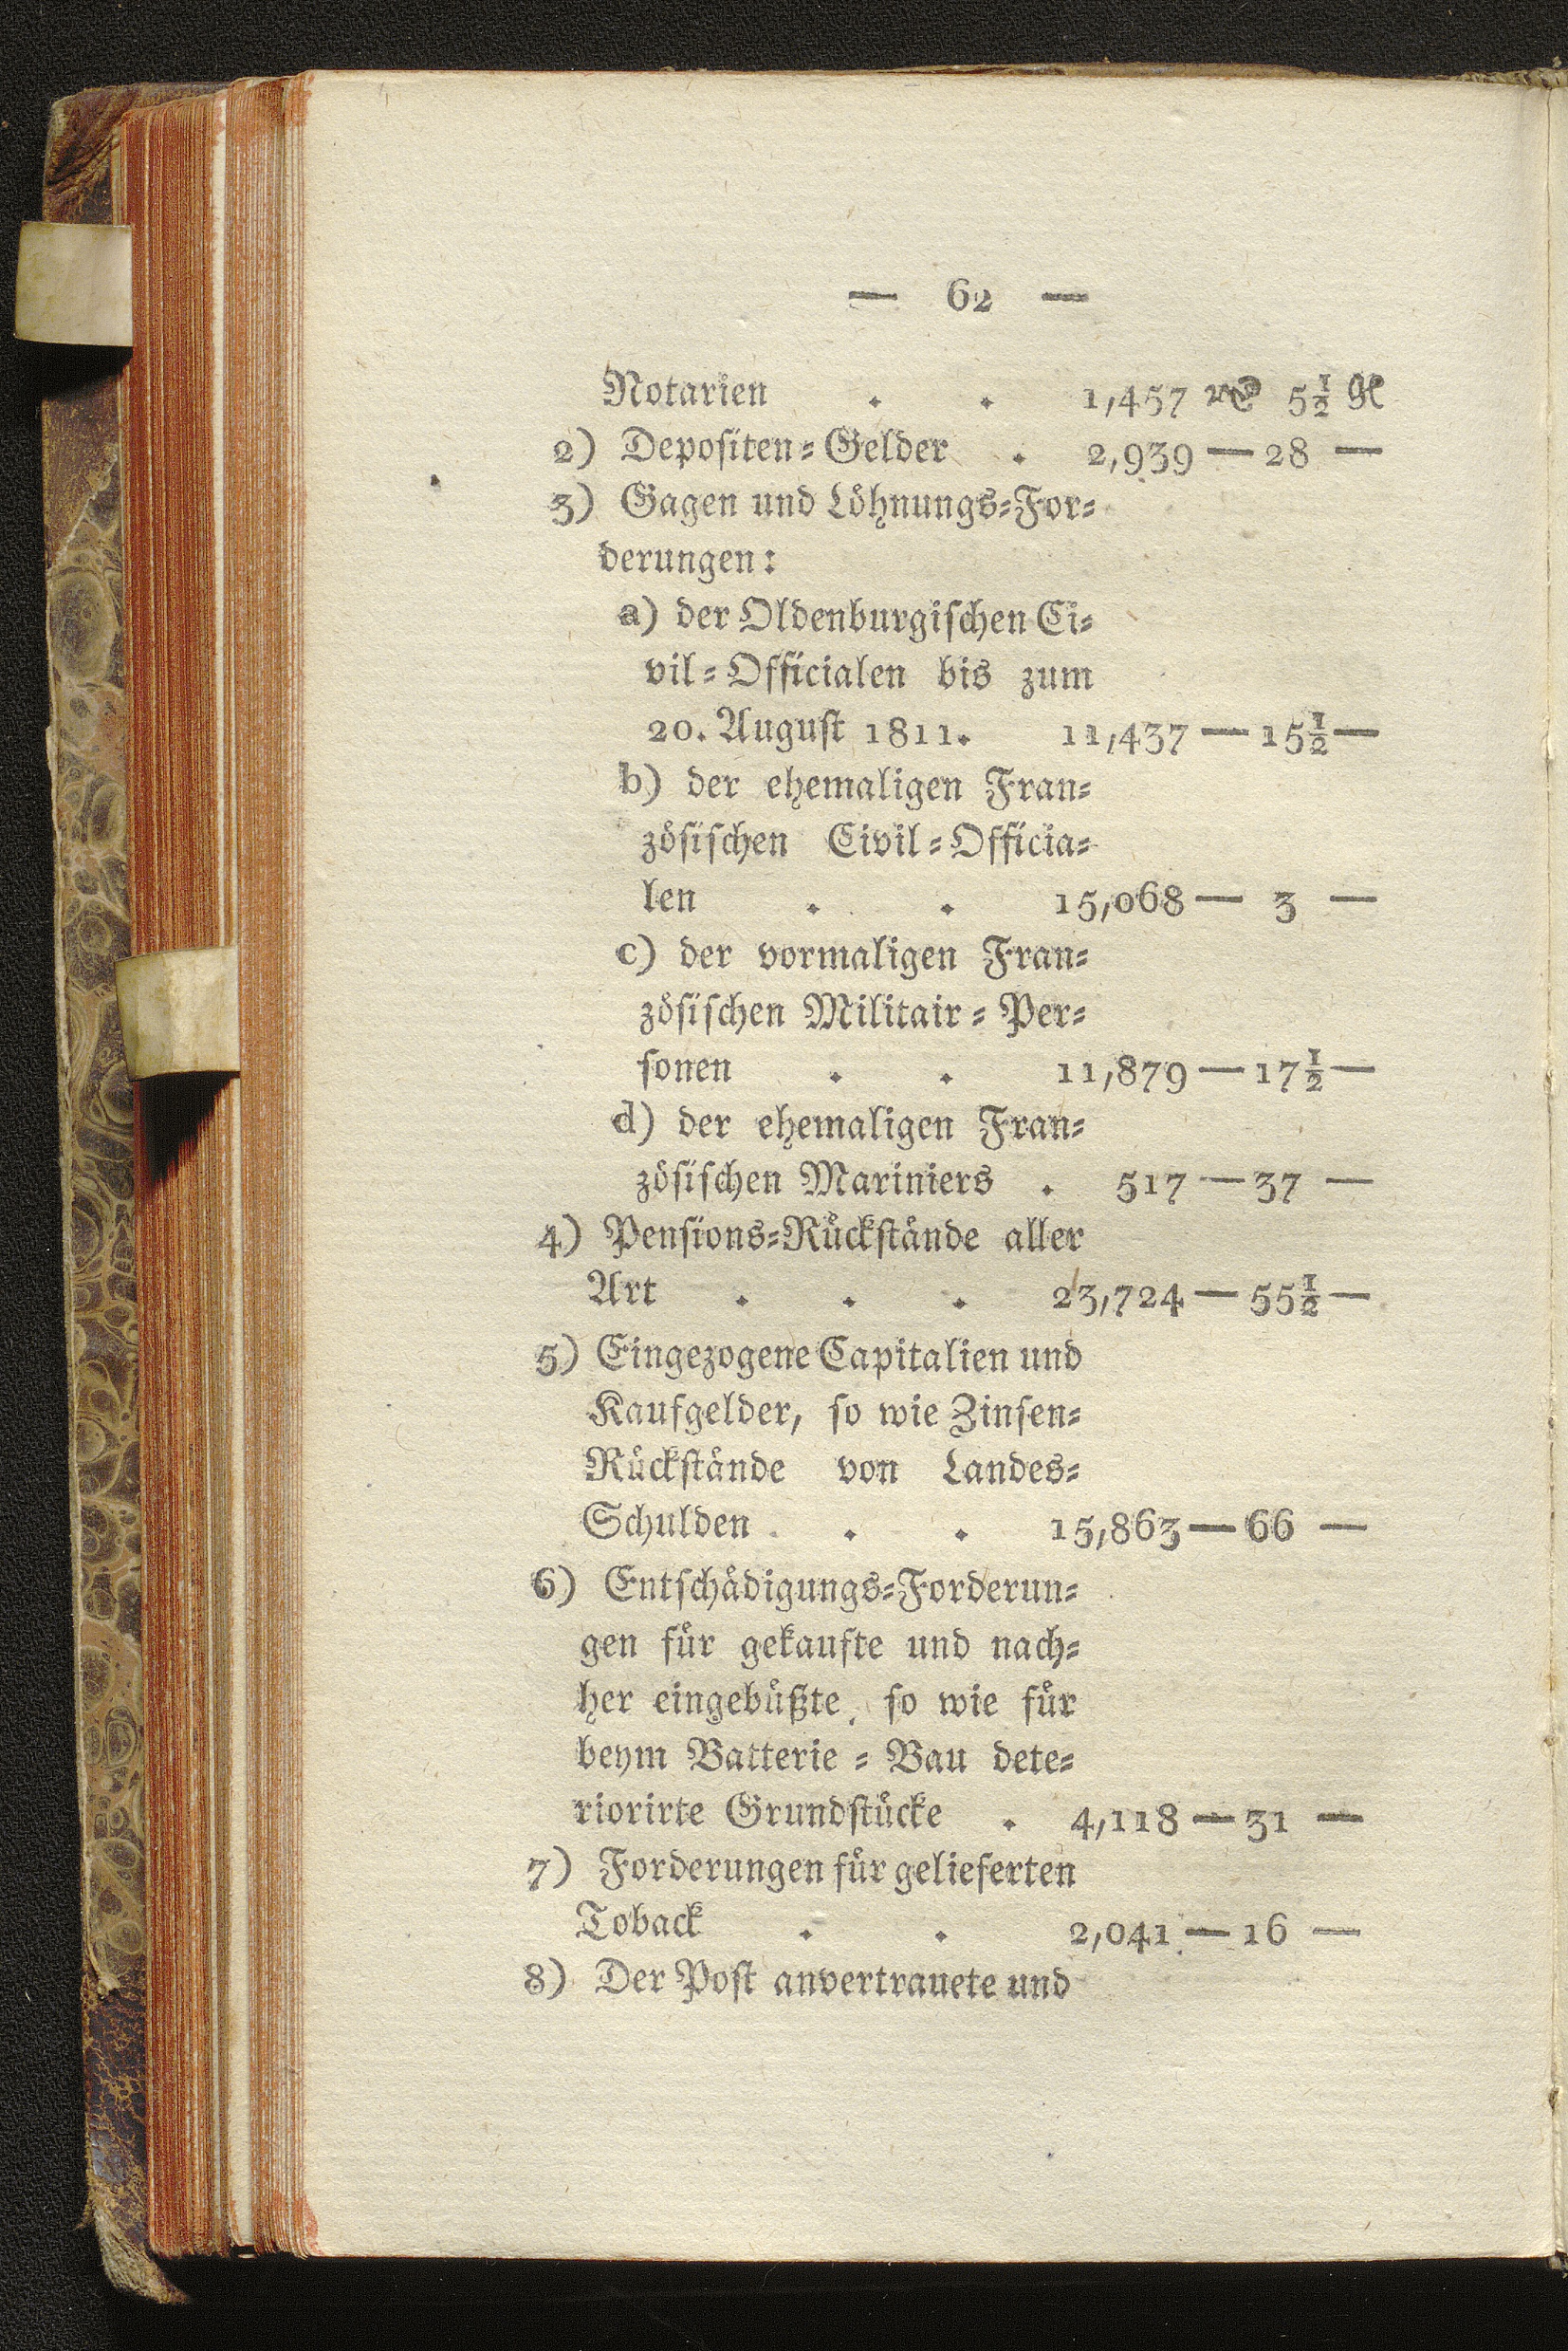 — 62 —
Notarien . . 1,457 𝓇𝒻 5½ gl
2) Depositen-Gelder . 2,939 — 28 —
3) Gagen und Löhnungs-For-
derungen:
a) der Oldenburgischen Ci-
vil-Officialen bis zum
20. August 1811. 11,437 — 15½ —
b) der ehemaligen Fran-
zösischen Civil-Officia-
len . . 15,068 — 3 —
c) der vormaligen Fran-
zösischen Militair-Per-
sonen . . 11,879 — 17½ —
d) der ehemaligen Fran-
zösischen Mariniers . 517 — 37 —
4) Pensions-Rückstände aller
Art . . . 23,724 — 55½ —
5) Eingezogene Capitalien und
Kaufgelder, so wie Zinsen-
Rückstände von Landes-
Schulden . . . 15,863 — 66 —
6) Entschädigungs-Forderun-
gen für gekaufte und nach-
her eingebüßte, so wie für
beym Batterie-Bau dete-
riorirte Grundstücke . 4,118 — 31 —
7) Forderungen für gelieferten
Toback . . 2,041 — 16 —
8) Der Post anvertrauete und